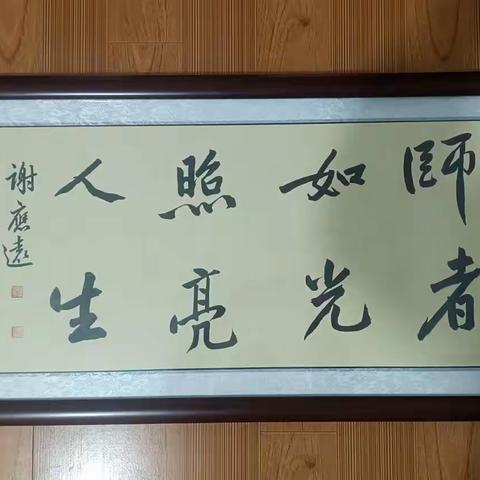 師者
如光
照亮
人生
謝應遠